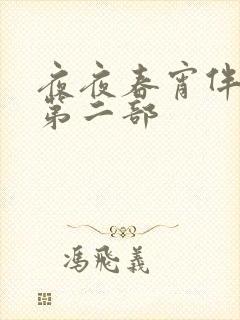 夜夜春宵伴
第二部
冯飛義